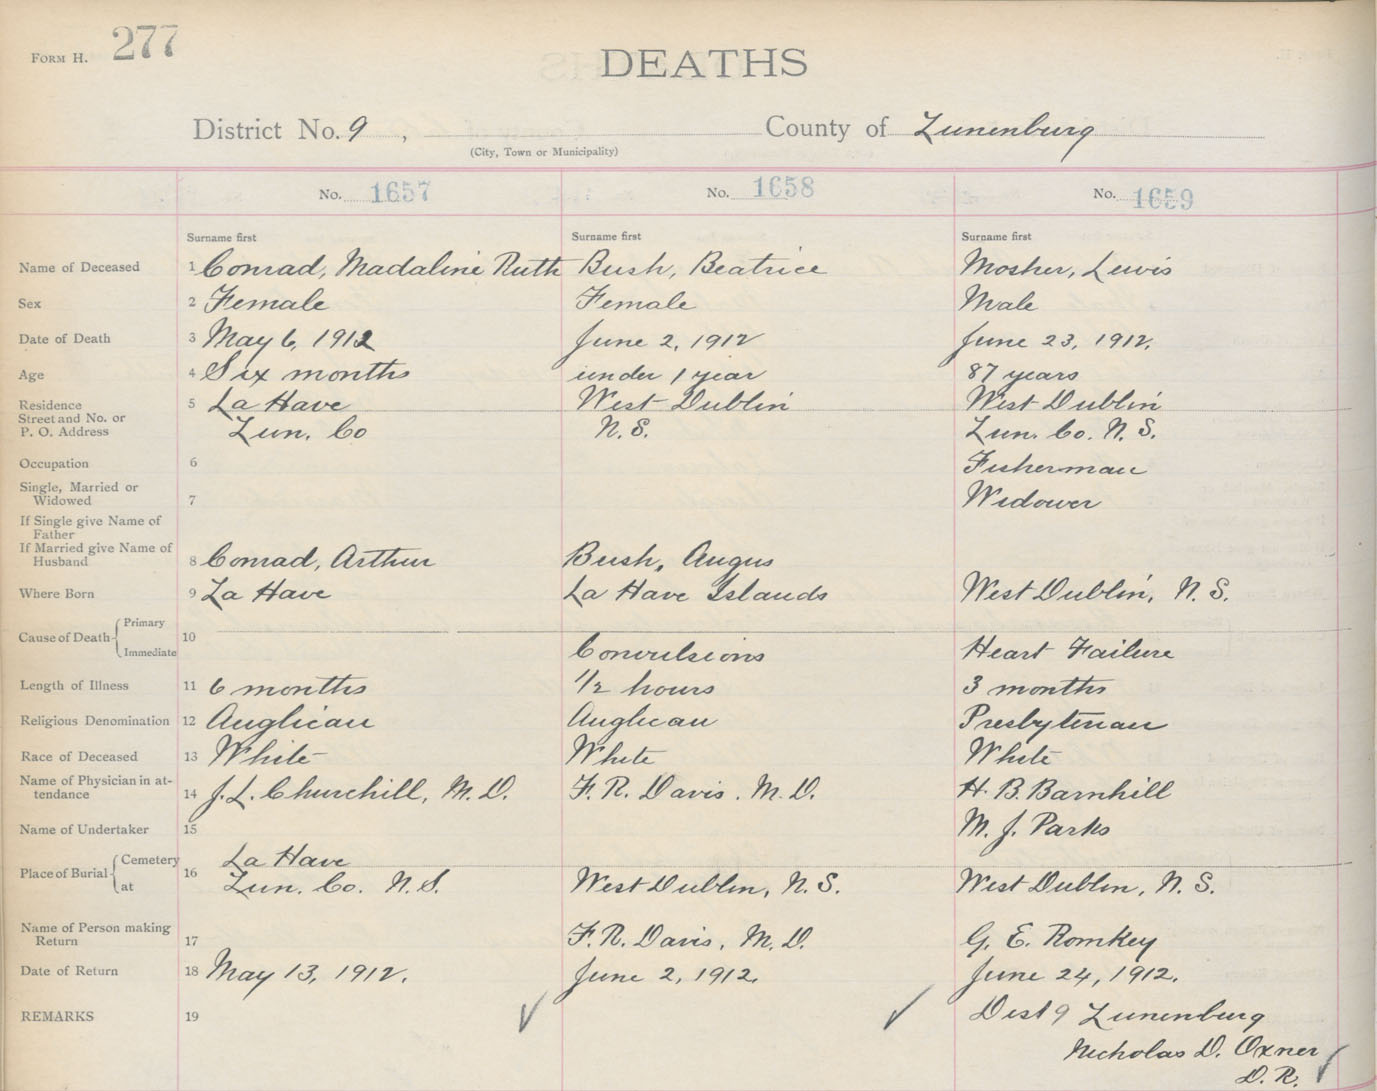 FORM H. 277
DEATHS
District No. 9 , County of Lunenburg
(City, Town or Municipality)
No. 1657 No. 1658 No. 1659
Surname first Surname first Surname first
Name of Deceased 1 Conrad, Madaline Ruth Bush, Beatrice Mosher, Lewis
Sex 2 Female Female Male
Date of Death 3 May 6, 1912 June 2, 1912 June 23, 1912.
Age 4 Six months under 1 year 87 years
Residence 5 La Have West Dublin West Dublin
Street and No. or
P. O. Address Lun. Co N. S. Lun. Co. N. S.
Occupation 6 Fisherman
Single, Married or
Widowed 7 Widower
If Single give Name of
Father
If Married give Name of
Husband 8 Conrad, Arthur Bush, Angus
Where Born 9 La Have La Have Islands West Dublin, N. S.
Primary
Cause of Death 10
Immediate Convulsions Heart Failure
Length of Illness 11 6 months 1/2 hours 3 months
Religious Denomination 12 Anglican Anglican Presbyterian
Race of Deceased 13 White White White
Name of Physician in at-
tendance 14 J. L. Churchill, M. D. F. R. Davis. M. D. H. B. Barnhill
Name of Undertaker 15 M. J. Parks
Cemetery La Have
Place of Burial 16
at Lun. Co. N. S. West Dublin, N. S. West Dublin, N. S.
Name of Person making
Return 17 F. R. Davis, M. D. G. E. Romkey
Date of Return 18 May 13, 1912. June 2, 1912. June 24, 1912.
REMARKS 19 Dist 9 Lunenburg
Nicholas D. Oxner
D. R.